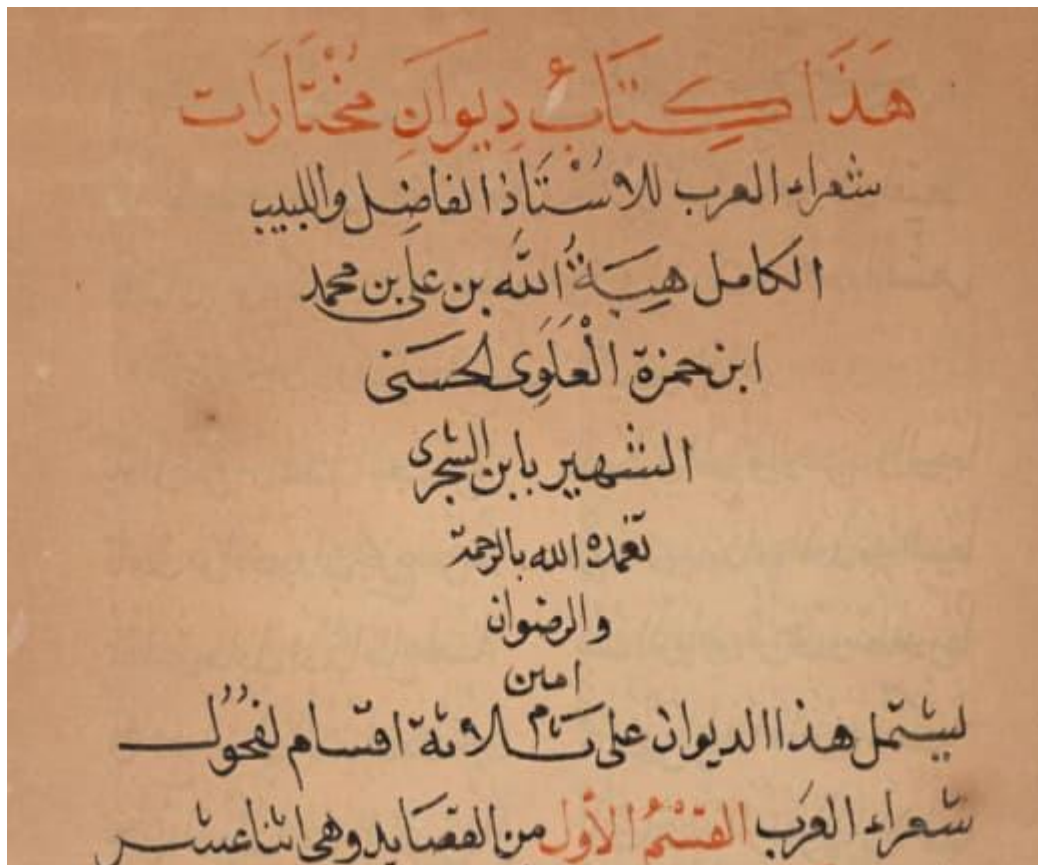 هَذَا كِتَابُ دِيوَانِ مُخْتَارَات
شعراء العرب للاسْتَاذ الفاضِل واللبيب
الكامل هِبَةُ الله بن على بن محمد
ابن حمزة الْعَلَوِى الحسَنى
الشهير بابن الشجرى
تغمده الله بالرحمة
والرضوان
امين
يشتمل هذا الديوان على ثلاثة اقسام لفحُول
شعراء العَرب القسْمُ الأول من القصايد وهى اثنا عشر